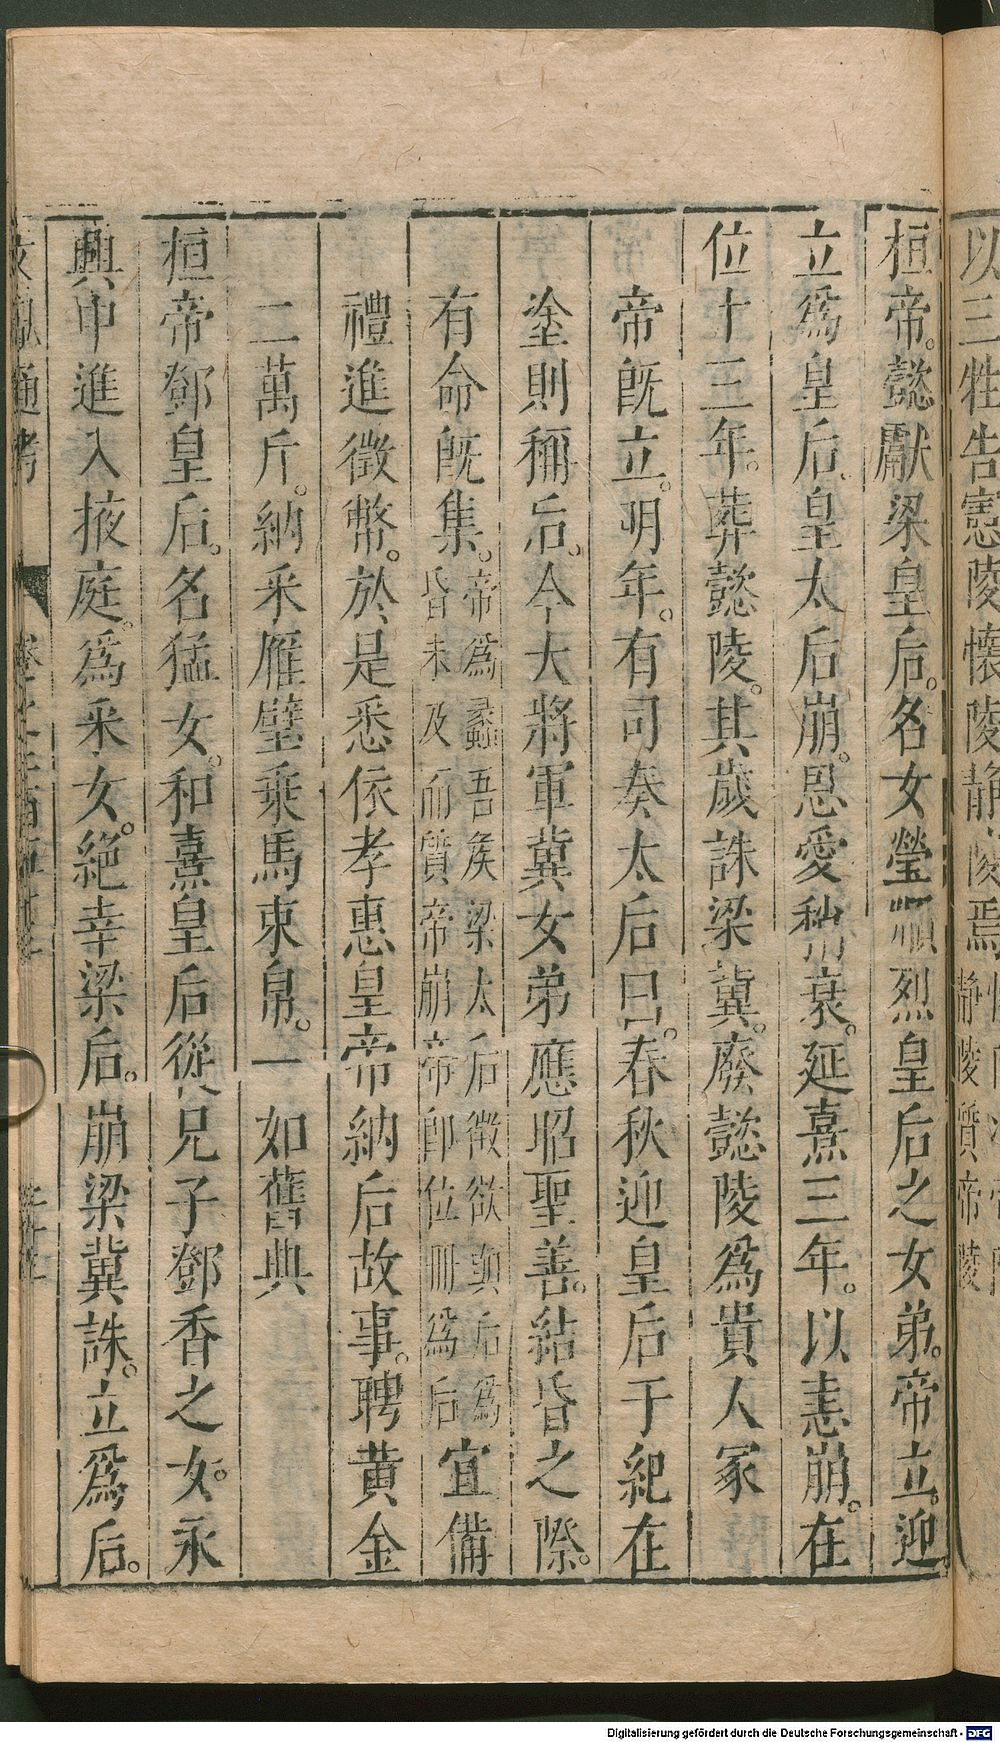 以三牲告憲陵懷陵靜陵焉
靜陵質帝陵
桓帝。懿獻梁皇后。名女瑩順烈皇后之女弟。帝立。迎
立爲皇后。皇太后崩。恩愛稍衰。延熹三年。以恚崩。在
位十三年。葬懿陵。其歲誅梁冀。廢懿陵爲貴人冢
帝旣立。明年。有司奏太后曰。春秋迎皇后于紀在
塗則稱后。今大將軍冀女弟應昭聖善。結昏之際。
有命旣集。帝爲蠡吾侯梁太后徵欲與后爲昏未及而質帝崩帝卽位冊爲后宜備
禮進徵幣。於是悉依孝惠皇帝納后故事。聘黃金
二萬斤。納采雁璧乘馬束帛。一如舊典
桓帝鄧皇后。名猛女。和熹皇后從兄子鄧香之女。永
興中進入掖庭。爲采女。絕幸梁后。崩梁冀誅。立爲后。
通考
Digitalisierung gefördert durch die Deutsche Forschungsgemeinschaft - DFG